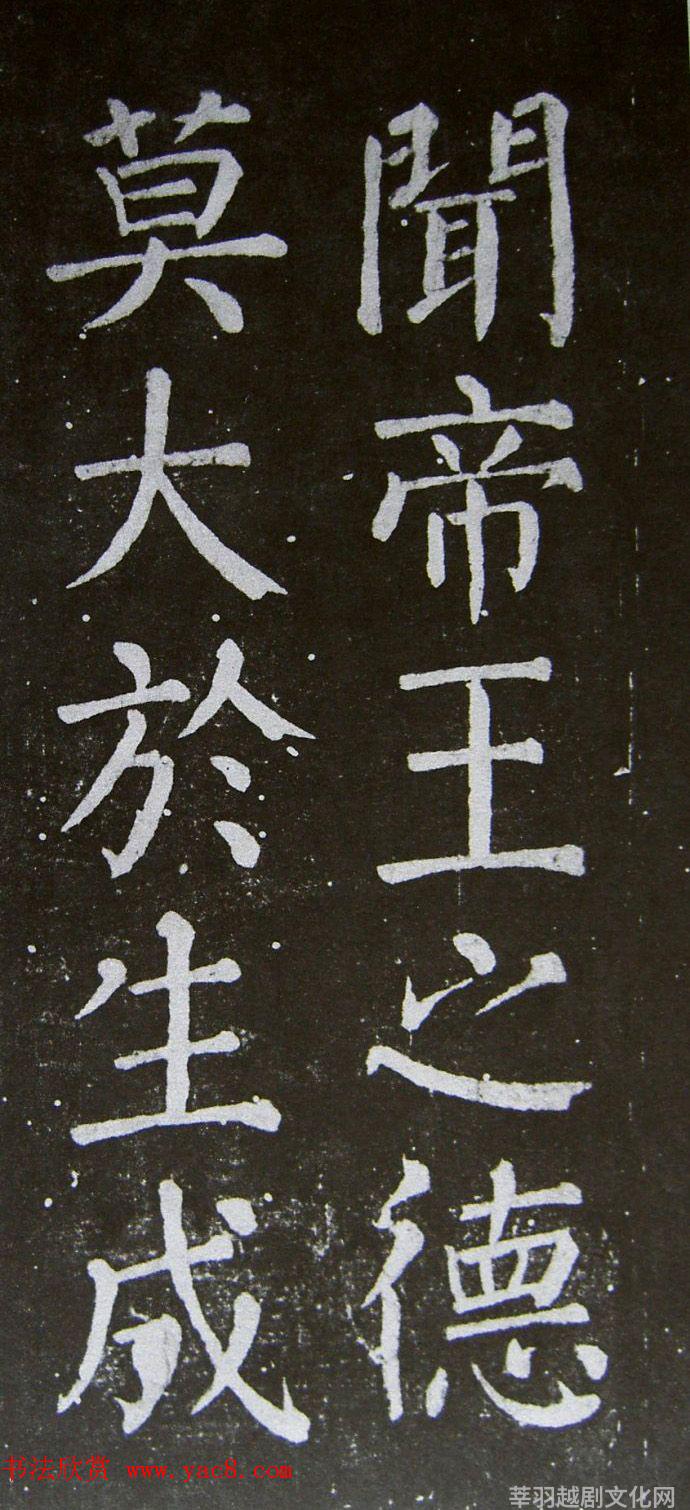 聞帝王之德
莫大於生成
书法欣赏 www.yac8.com
莘羽越剧文化网